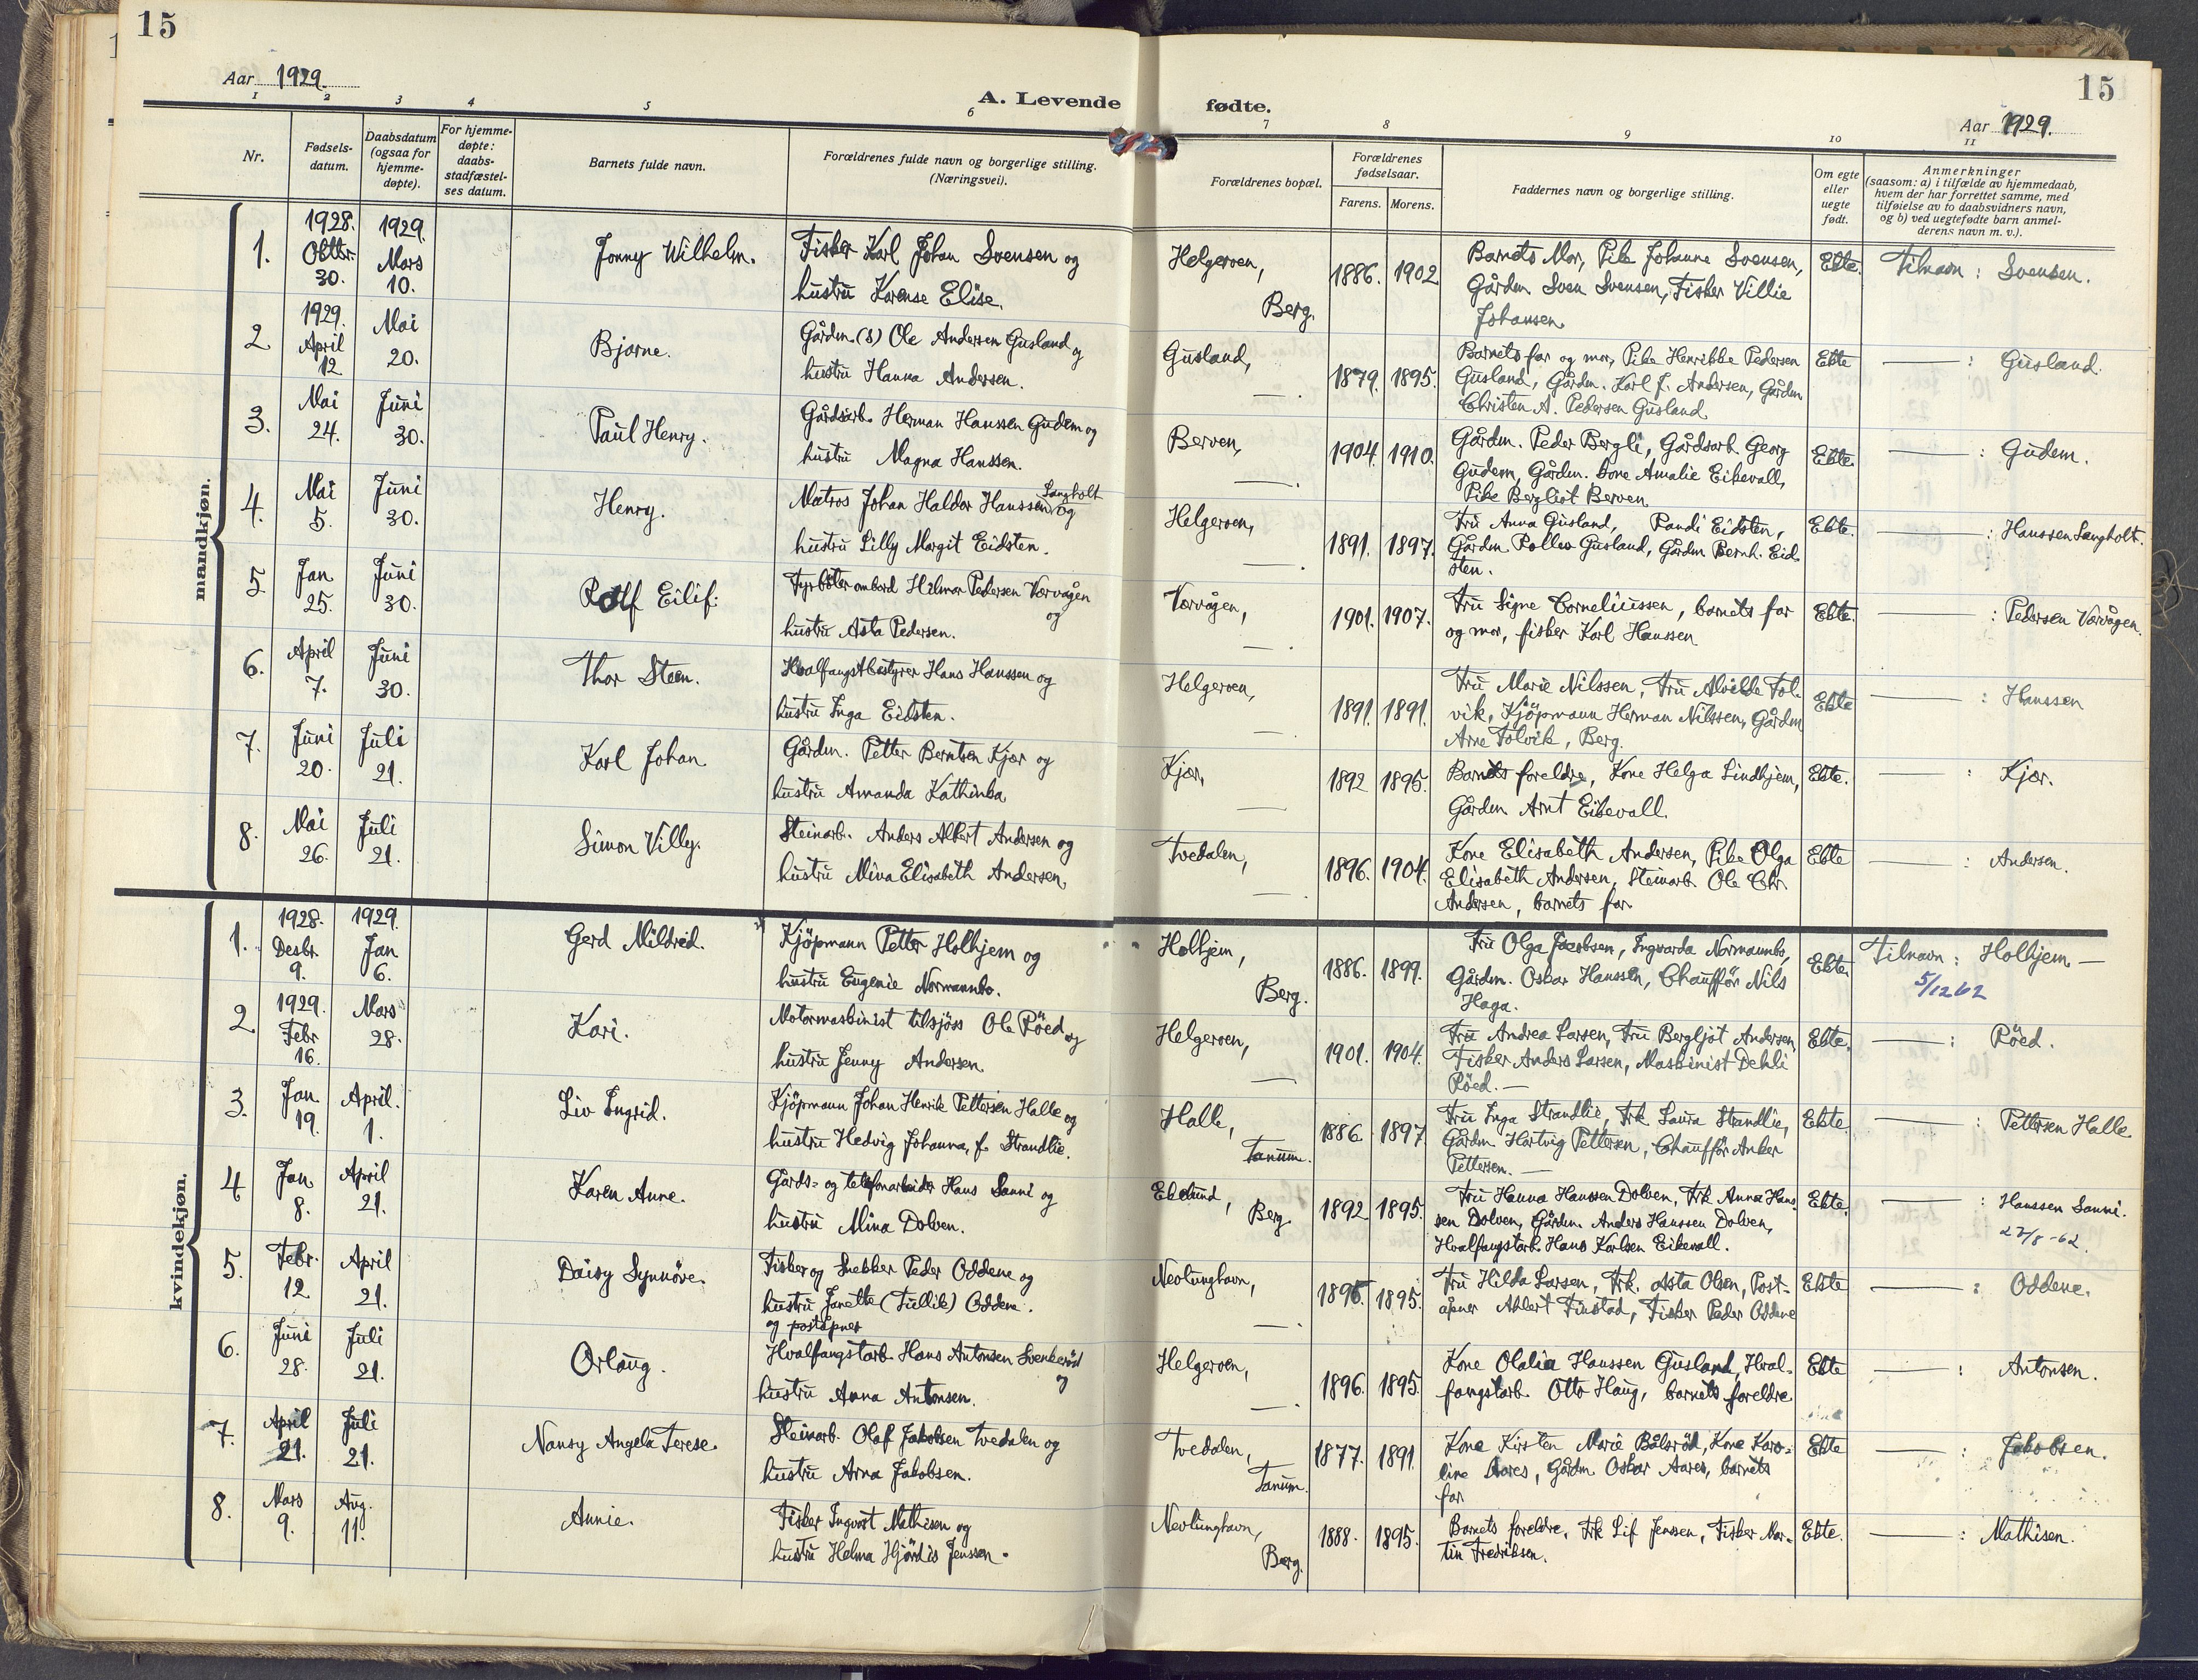 15
Aar 1929.
A. Levende
1 2 3 4 5 6
Nr.
Fødsels-
datum.
Daabsdatum
(ogsaa for
hjemme-
døpte).
For hjemme-
døpte:
daabs-
stadfæstel-
ses datum.
Barnets fulde navn.
Forældrenes fulde navn og borgerlige stilling.
(Næringsvei).
fødte.
15
Aar 1929.
7 8 9 10 11
Forældrenes bopæl.
Forældrenes
fødselsaar.
Farens. Morens.
Faddernes navn og borgerlige stilling.
Om egte
eller
uegte
født.
Anmerkninger
(saasom: a) i tilfælde av hjemmedaab,
hvem der har forrettet samme, med
tilføielse av to daabsvidners navn,
og b) ved uegtefødte barn anmel-
derens navn m. v.).
mandkjøn.
1.
1928.
Oktbr.
30.
1929.
Mars
10.
Jonny Wilhelm.
Fisker Karl Johan Svensen og
hustru Karense Elise.
Helgeroen,
Berg.
1886. 1902
Barnets Mor, Pike Johanne Svensen,
Gårdm. Sven Svensen, Fisker Villie
Johansen.
Ekte.
Tilnavn : Svensen.
2
1929.
April
12
Mai
20.
Bjarne.
Gårdm. (s) Ole Andersen Gusland og
hustru Hanna Andersen.
Gusland,
— .
1879. 1895.
Barnets far og mor, Pike Henrikke Pedersen
Gusland, Gårdm. Karl J. Andersen, Gårdm
Christen A. Pedersen Gusland
Ekte
— : Gusland.
3.
Mai
24.
Juni
30.
Paul Henry.
Gårdsarb. Herman Hanssen Gudem og
hustru Magna Hanssen.
Berven,
— .
1904. 1910.
Gårdm. Peder Bergli, Gårdsarb Georg
Gudem, Gårdm. kone Amalie Eikevall,
Pike Bergliot Berven
Ekte.
— : Gudem.
4.
Mai
5.
Juni
30.
Henry.
Langholt
Matros Johan Haldor Hanssen og
hustru Lilly Margit Eidsten.
Helgeroen,
— .
1891. 1897.
Fru Anna Gusland, Randi Eidsten,
Gårdm. Rollew Gusland, Gårdm Bernh. Eid-
sten.
Ekte.
— : Hanssen Langholt.
5
Jan
25.
Juni
30.
Rolf Eilif.
Fyrböter ombord Hilmar Pedersen Værvågen
og
hustru Asta Pedersen.
Værvågen,
— .
1901. 1907.
Fru Signe Corneliussen, barnets far
og mor, fisker Karl Hanssen
Ekte.
— : Pedersen Værvågen.
6.
April
7.
Juni
30.
Thor Steen.
Hvalfangstbestyrer Hans Hanssen og
hustru Inga Eidsten.
Helgeroen,
— .
1891. 1891.
Fru Marie Nilssen, Fru Alvilde Tol-
vik, Kjöpmann Herman Nilssen, Gårdm
Arne Tolvik, Berg.
Ekte
— : Hanssen
7.
Juni
20.
Juli
21.
Karl Johan
Gårdm. Petter Berntsen Kjær og
hustru Amanda Kathinka
Kjær,
— .
1892 1895.
Barnets foreldre, Kone Helga Lindhjem,
Gårdm Arnt Eikevall.
Ekte.
— : Kjær.
8.
Mai
26.
Juli
21.
Simon Villy.
Steinarb. Anders Albert Andersen og
hustru Mina Elisabeth Andersen,
Tvedalen,
— .
1896. 1904.
Kone Elisabeth Andersen, Pike Olga
Elisabeth Andersen, Steinarb Ole Chr.
Andersen, barnets far.
Ekte
— : Andersen.
kvindekjøn.
1.
1928.
Desbr.
9.
1929.
Jan
6.
Gerd Mildred.
Kjöpmann Petter Holhjem og
hustru Eugenie Normannbo.
Holhjem,
Berg.
1886. 1899.
Fru Olga Jacobsen, Ingvarda Normannbo,
Gårdm. Oskar Hanssen, Chaufför Nils
Haga.
Ekte.
Tilnavn : Holhjem —
5/12 62
2
1929.
Febr
16.
Mars
28.
Kari.
Motormaskinist tilsjöss Ole Röed og
hustru Jenny Andersen.
Helgeroen,
—
1901. 1904.
Fru Andrea Larsen, Fru Bergljot Andersen,
Fisker Anders Larsen, Maskinist Dehli
Röed. —
Ekte.
— : Röed.
3.
Jan.
19.
April.
1.
Liv Ingrid.
Kjöpmann Johan Henrik Pettersen Halle og
hustru Hedvig Johanna, f. Strandlie.
Halle,
Tanum.
1886. 1897
Fru Inga Strandlie, Frk Laura Strandlie,
Gårdm Hartvig Pettersen, Chauffør Anker
Pettersen. —
Ekte
— : Pettersen Halle
4
Jan
8.
April
21.
Karen Anne.
Gårds- og telefonarbeider Hans Sanni og
hustru Mina Dolven.
Ekelund,
Berg.
1892 1895.
Fru Hanna Hanssen Dolven, Frk. Anna Hans-
sen Dolven, Gårdm. Anders Hanssen Dolven,
Hvalfangstarb. Hans Karlsen Eikevall.
Ekte.
— : Hanssen Sanni.
27/8 -62.
5.
Febr.
12.
April
21.
Daisy Synnöve.
Fisker og Snekker Peder Oddene og
hustru Janette (Tullik) Oddene.
og poståpner
Nevlunghavn,
— .
1896. 1895.
Fru Hilda Larsen, Frk. Asta Olsen, Post-
åpner Ahlert Finstad, Fisker Peder Oddene
Ekte
— : Oddene.
6.
Juni
28.
Juli
21.
Orlaug.
Hvalfangstarb. Hans Antonsen Svenkeröd
og
hustru Anna Antonsen.
Helgeroen,
— .
1896. 1895.
Kone Olalia Hanssen Gusland, Hval-
fangstarb. Otto Haug, barnets foreldre
Ekte
— : Antonsen.
7.
April
21.
Juli
21.
Nansy Angela Terese.
Steinarb. Olaf Jakobsen Tvedalen og
hustru Arna Jakobsen.
Tvedalen,
Tanum.
1877. 1891.
Kone Kirsten Marie Bålsröd, Kone Karo-
line Aares, Gårdm Oskar Aares, barnets
far
Ekte
— : Jakobsen.
8.
Mars
9.
Aug.
11.
Annie.
Fisker Ingvart Mathisen og
hustru Helma Hjördis Jenssen.
Nevlunghavn,
Berg.
1888. 1895.
Barnets foreldre, Frk Lif Jenssen, Fisker Mar-
tin Fredriksen.
Ekte.
— : Mathisen.